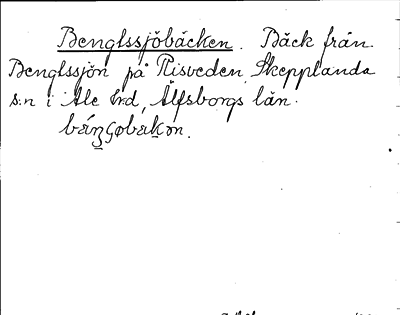 Benglssjöbäcken. Bäck från
Benglssjön på Risveden, Skepplanda
s:n i Ale hrd, Älfsborgs län.